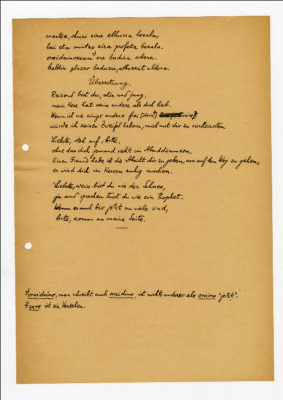 maitea, churi zira elhurra bezala,
bai eta mintzo zira profeta bezala.
oraidainokoan ere badira obera.
baldin plazer baduzu, ethorrit aldera.
Übersetzung.
Reizend bist du, oder und jung,
mein Herz hat keine andere als dich lieb.
Wenn ich wie einige andere frei (dort) wäre,
würde ich keinen Zweifel haben, mich mit dir zu verheiraten.
Liebste, steh auf, bitte,
ohne dass dich jemand sieht im Abenddämmern.
Einen Freund habe ich die Absicht dir zu geben, um auf den Weg zu gehen,
er wird dich im Herzen ruhig machen.
Liebste, weiss bist du wie der Schnee,
ja und sprechen tust du wie ein Prophet.
Wenn
bis jetzt
sind,
bitte, komm an meine Seite.
oraidaino, man schreibt auch oraidino, ist nichts anderes als oraino "jetzt".
ist ein Versehen.